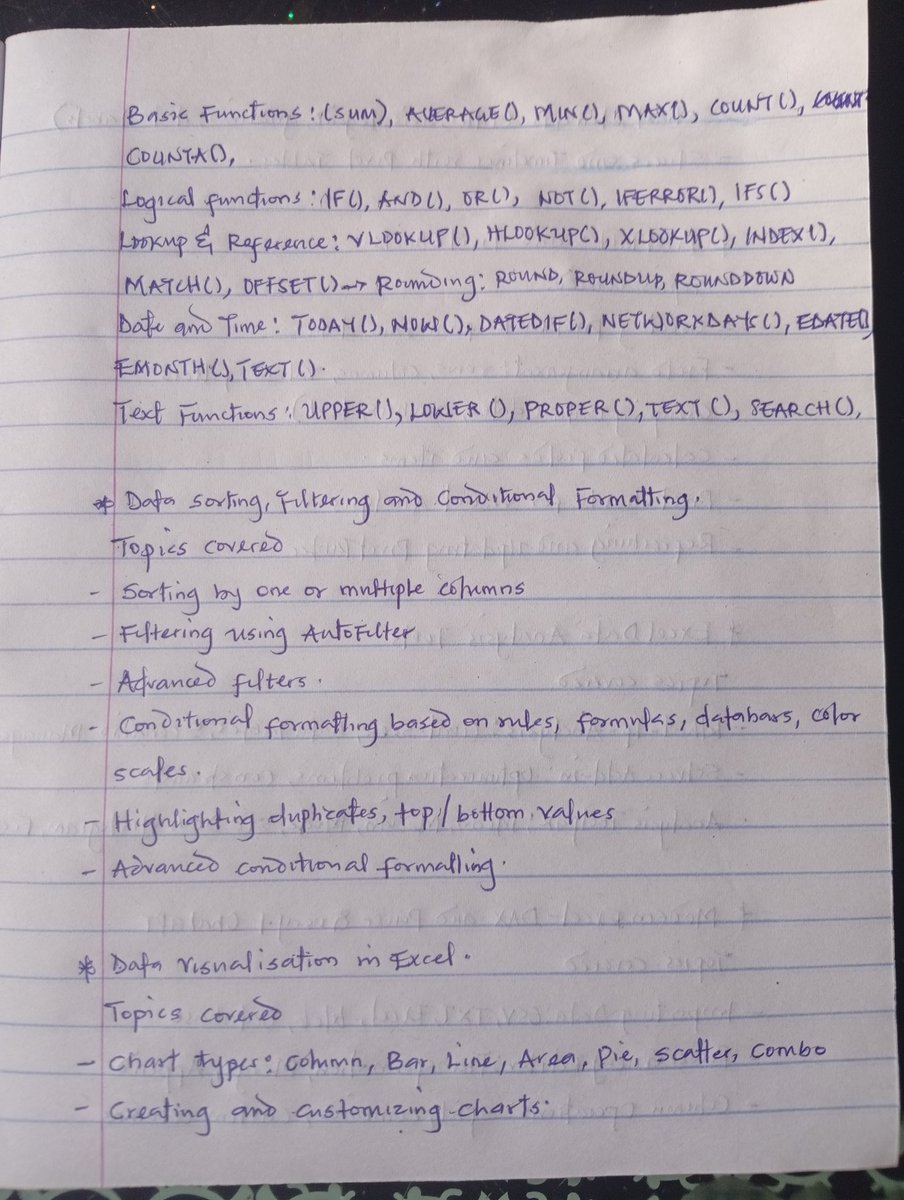 Basic Functions: (SUM), AVERAGE(), MIN(), MAX(), COUNT(),
COUNTA(),
Logical functions: IF(), AND(), OR(), NOT(), IFERROR(), IFS()
Lookup & Reference: VLOOKUP(), HLOOKUP(), XLOOKUP(), INDEX(),
MATCH(), OFFSET() → Rounding: ROUND, ROUNDUP, ROUNDDOWN
Date and Time: TODAY(), NOW(), DATEDIF(), NETWORKDAYS(), EDATE(),
EMONTH(), TEXT().
Text Functions: UPPER(), LOWER(), PROPER(), TEXT(), SEARCH(),
* Data sorting, filtering and Conditional Formatting.
Topics covered
- Sorting by one or multiple columns
- Filtering using AutoFilter
- Advanced filters.
- Conditional formatting based on rules, formulas, databars, color
scales.
- Highlighting duplicates, top/bottom values
- Advanced conditional formatting.
* Data visualisation in Excel.
Topics covered
- Chart types: Column, Bar, Line, Area, Pie, Scatter, Combo
- Creating and customizing charts.